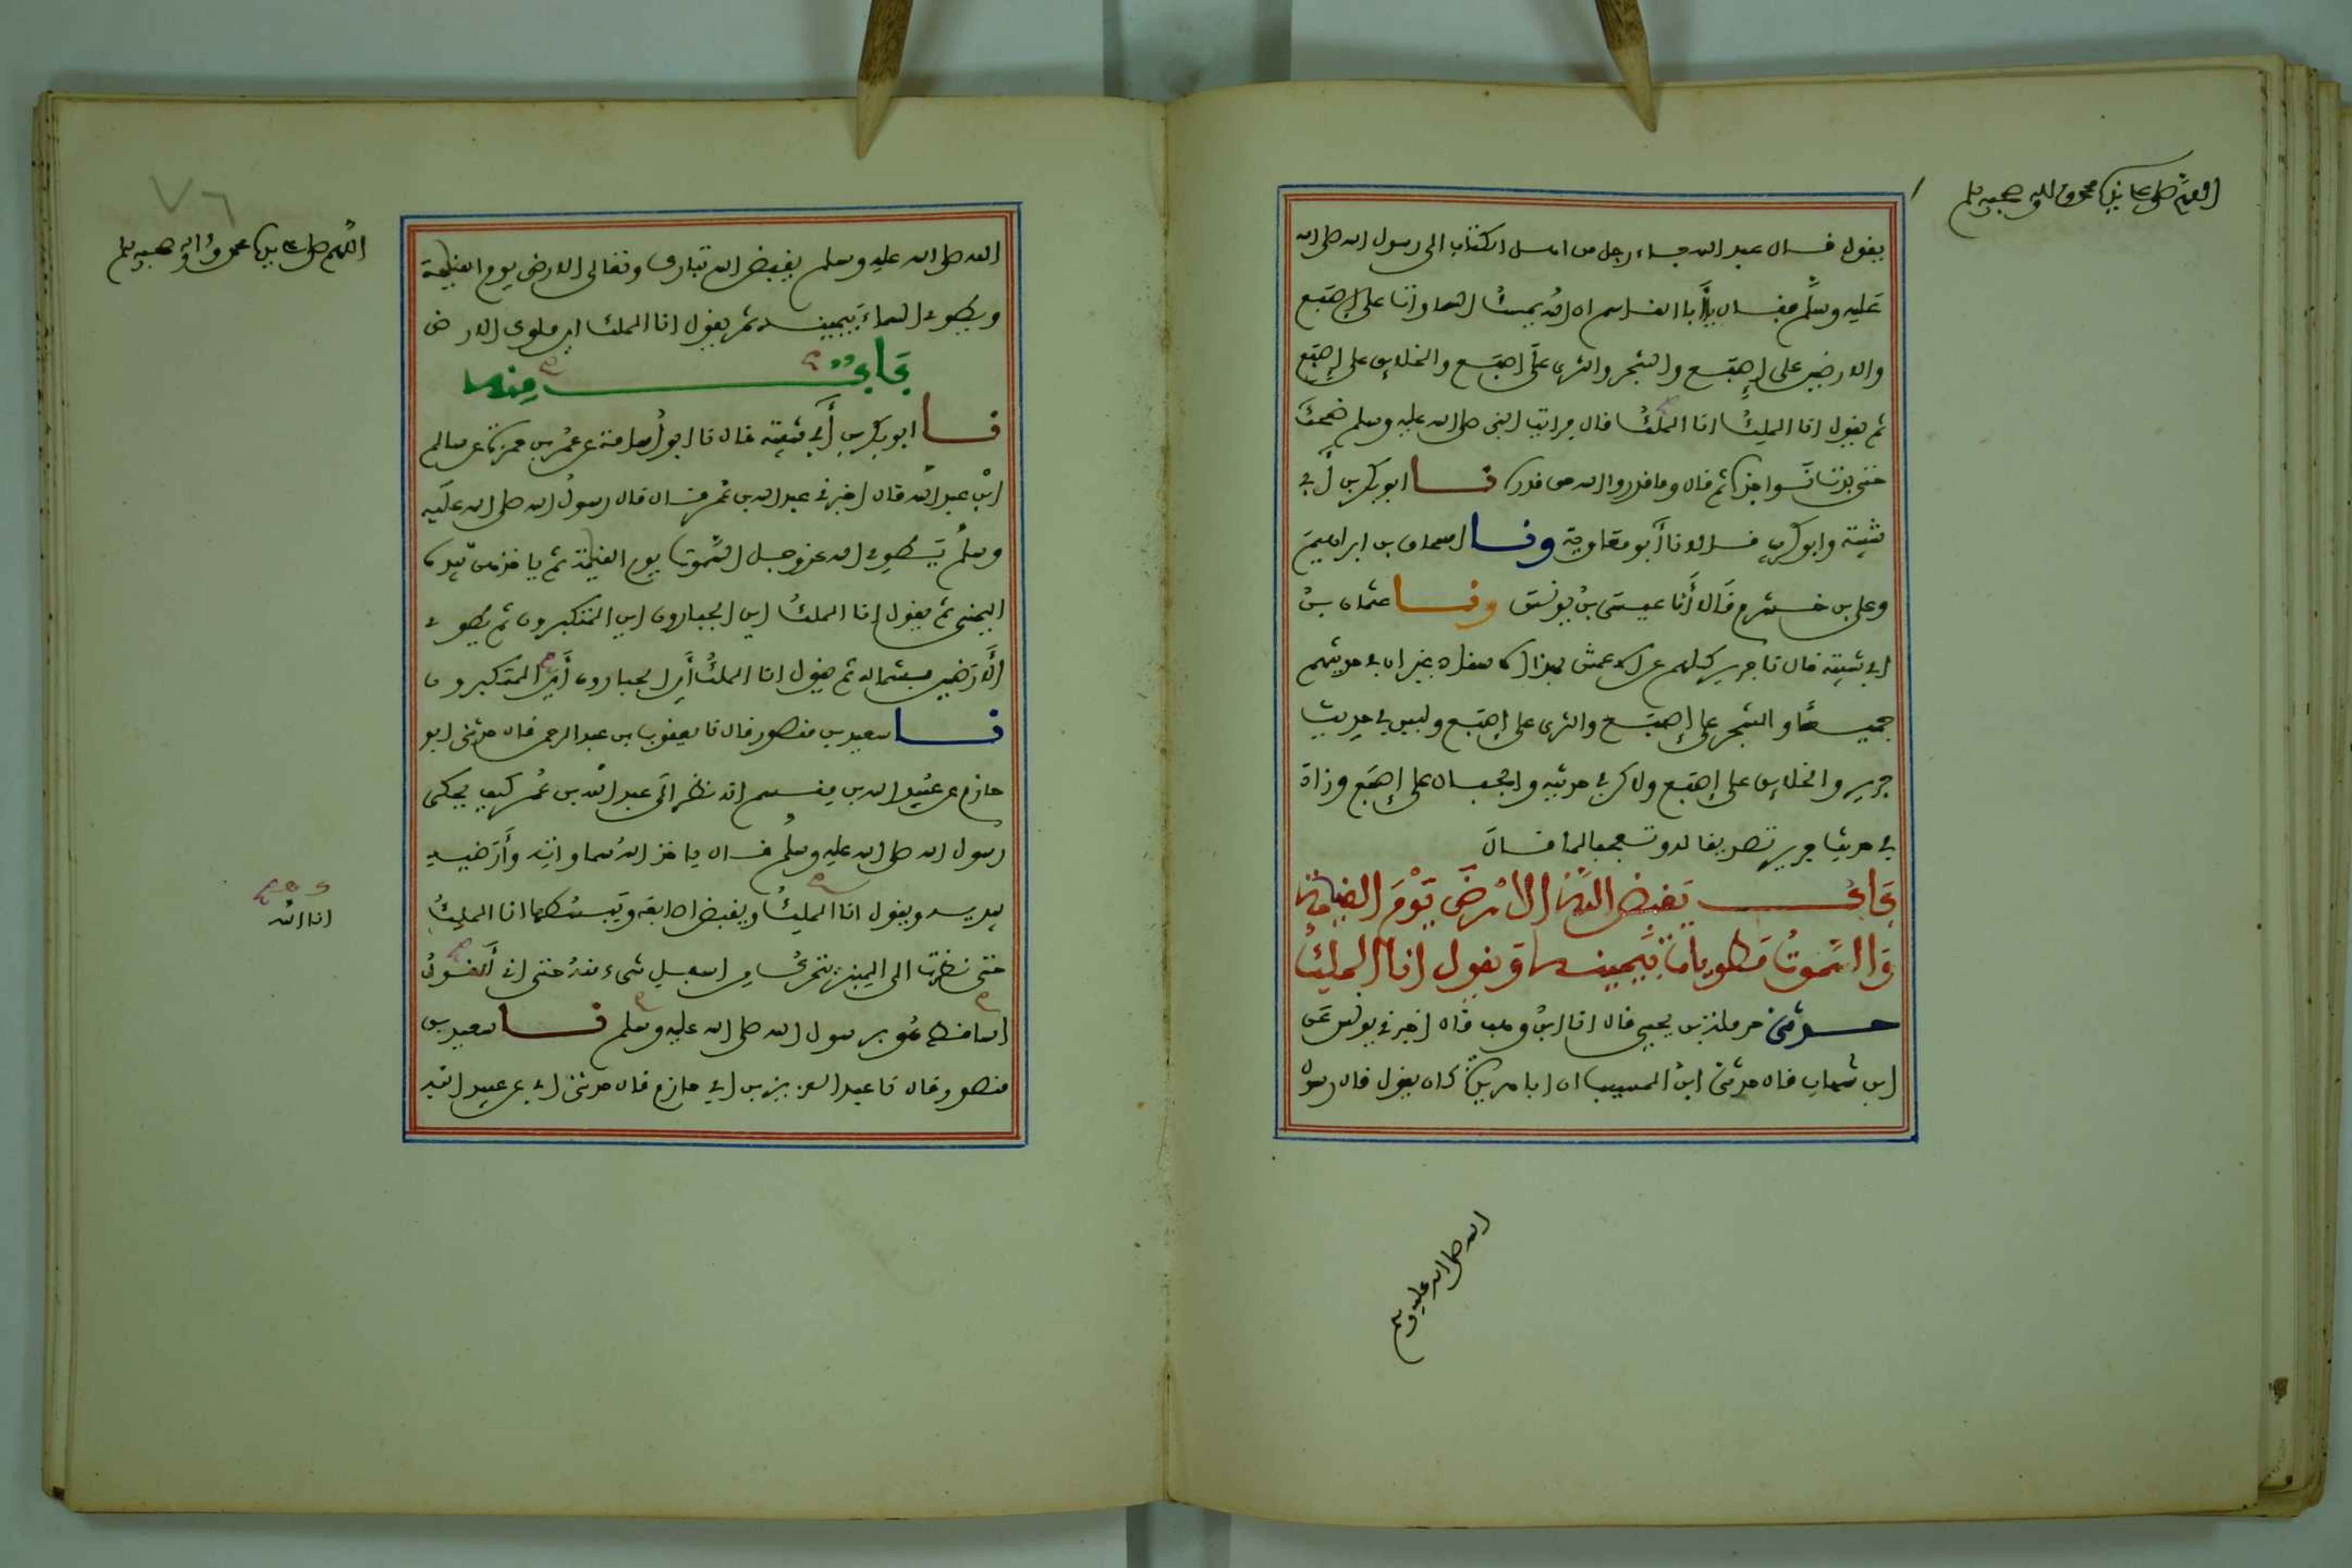 اللهم صل على نبينا محمد وءاله وصحبه وسلم
يقول قال عبد الله جاء رجل من اهل الكتاب الى رسول الله صلى الله
عليه وسلم فقال يا أبا القاسم ان الله يمسك السماوات على إصبع
والارضين على إصبع والشجر والثرى على إصبع والخلايق على إصبع
ثم يقول انا الملك انا الملك قال فرايت النبي صلى الله عليه وسلم ضحك
حتى بدت نواجذه ثم قال وما قدروا الله حق قدره نا ابو بكر بن أبي
شيبة وابو كريب قالا نا أبو معاوية ونا اسحاق بن ابراهيم
وعلي بن خشرم قالا أنا عيسى بن يونس ونا عثمان بن
ابي شيبة قال نا جرير كلهم عن الاعمش بهذا الاسناد غير ان في حديثهم
جميعا والشجر على إصبع والثرى على إصبع وليس في حديث
جرير والخلايق على إصبع ولاكن في حديثه والجبال على إصبع وزاد
في حديث جرير تصديقا له وتعجبا لما قال
باب يقبض الله الارض يوم القيامة
والسموت مطويات بيمينه ويقول انا الملك
حدثني حرملة بن يحيى قال انا ابن وهب قال اخبرني يونس عن
ابن شهاب قال حدثني ابن المسيب ان ابا هريرة كان يقول قال رسول
الله صلى الله عليه وسلم
٧٦
اللهم صل على نبينا محمد وءاله وصحبه وسلم
الله صلى الله عليه وسلم يقبض الله تبارك وتعالى الارض يوم القيامة
ويطوي السماء بيمينه ثم يقول انا الملك اين ملوك الارض
باب منه
نا ابو بكر بن أبي شيبة قال نا ابو أسامة عن عمر بن حمزة عن سالم
ابن عبد الله قال اخبرني عبد الله بن عمر قال قال رسول الله صلى الله عليه
وسلم يطوي الله عز وجل السموت يوم القيامة ثم ياخذهن بيده
اليمنى ثم يقول انا الملك اين الجبارون اين المتكبرون ثم يطوي
الأرضين بشماله ثم يقول انا الملك أين الجبارون أين المتكبرون
نا سعيد بن منصور قال نا يعقوب بن عبد الرحمن قال حدثني ابو
حازم عن عبيد الله بن مقسم انه نظر الى عبد الله بن عمر كيف يحكي
رسول الله صلى الله عليه وسلم قال ياخذ الله سماواته وأرضيه
بيديه ويقول انا الملك ويقبض اصابعه ويبسطها انا الملك
انا الله
حتى نظرت الى المنبر يتحرك من اسفل شيء منه حتى اني أقول
اساقط هو برسول الله صلى الله عليه وسلم نا سعيد بن
منصور قال نا عبد العزيز بن ابي حازم قال حدثني ابي عن عبيد الله